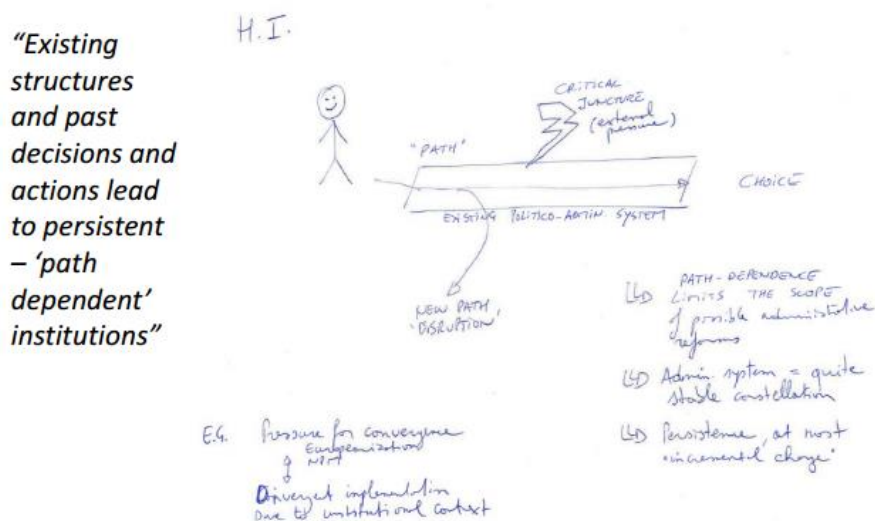 “Existing
structures
and past
decisions and
actions lead
to persistent
– ‘path
dependent’
institutions”
H.I.
CRITICAL
JUNCTURE
(external
pressure)
"PATH"
CHOICE
EXISTING POLITICO-ADMIN SYSTEM
NEW PATH,
'DISRUPTION'
PATH-DEPENDENCE
LIMITS THE SCOPE
of possible administrative
reforms
Admin. system = quite
stable constellation
Persistence, at most
"incremental change"
E.G. Pressure for convergence
Europeanization
NPM
Divergent implementation
Due to institutional context